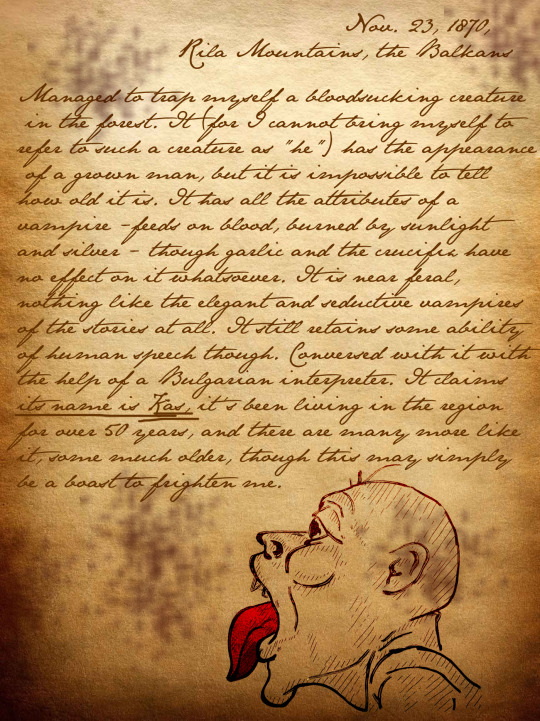 Nov. 23, 1870,
Rila Mountains, the Balkans
Managed to trap myself a bloodsucking creature
in the forest. It (for I cannot bring myself to
refer to such a creature as "he") has the appearance
of a grown man, but it is impossible to tell
how old it is. It has all the attributes of a
vampire - feeds on blood, burned by sunlight
and silver - though garlic and the crucifix have
no effect on it whatsoever. It is near feral,
nothing like the elegant and seductive vampires
of the stories at all. It still retains some ability
of human speech though. Conversed with it with
the help of a Bulgarian interpreter. It claims
its name is Kas, it's been living in the region
for over 50 years, and there are many more like
it, some much older, though this may simply
be a boast to frighten me.